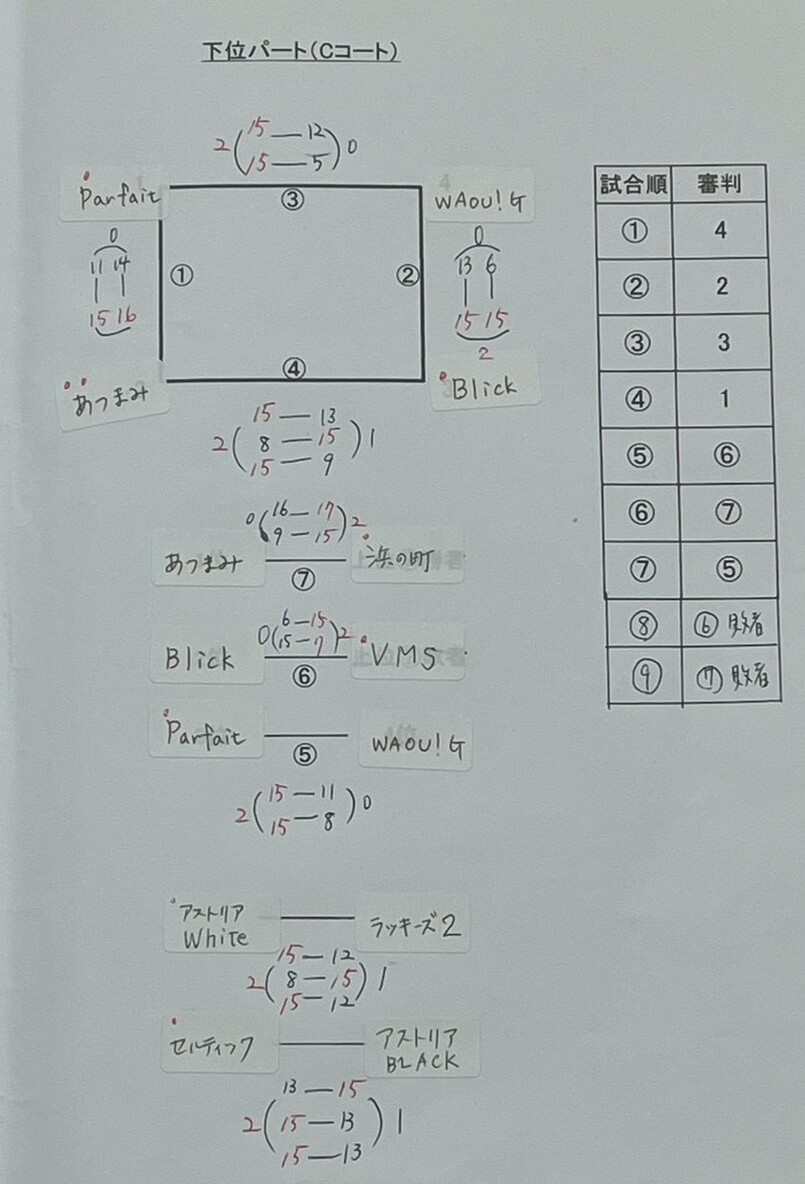 下位パート(Cコート)
15 — 12
2 ( ) 0
15 — 5
Parfait
③
WAOU!G
0
11 14
15 16
①
②
0
13 6
15 15
2
あつまみ
④
Blick
15 — 13
2 ( 8 — 15 ) 1
15 — 9
0 ( 16 — 17 ) 2
9 — 15
あつまみ
⑦
浜の町
6 — 15
0 ( 15 — 7 ) 2
Blick
⑥
VMS
Parfait
⑤
WAOU!G
15 — 11
2 ( ) 0
15 — 8
アストリア
White
ラッキーズ2
15 — 12
2 ( 8 — 15 ) 1
15 — 12
セルティック
アストリア
BLACK
13 — 15
2 ( 15 — 13 ) 1
15 — 13
試合順 審判
① 4
② 2
③ 3
④ 1
⑤ ⑥
⑥ ⑦
⑦ ⑤
⑧ ⑥ 敗者
⑨ ⑦ 敗者